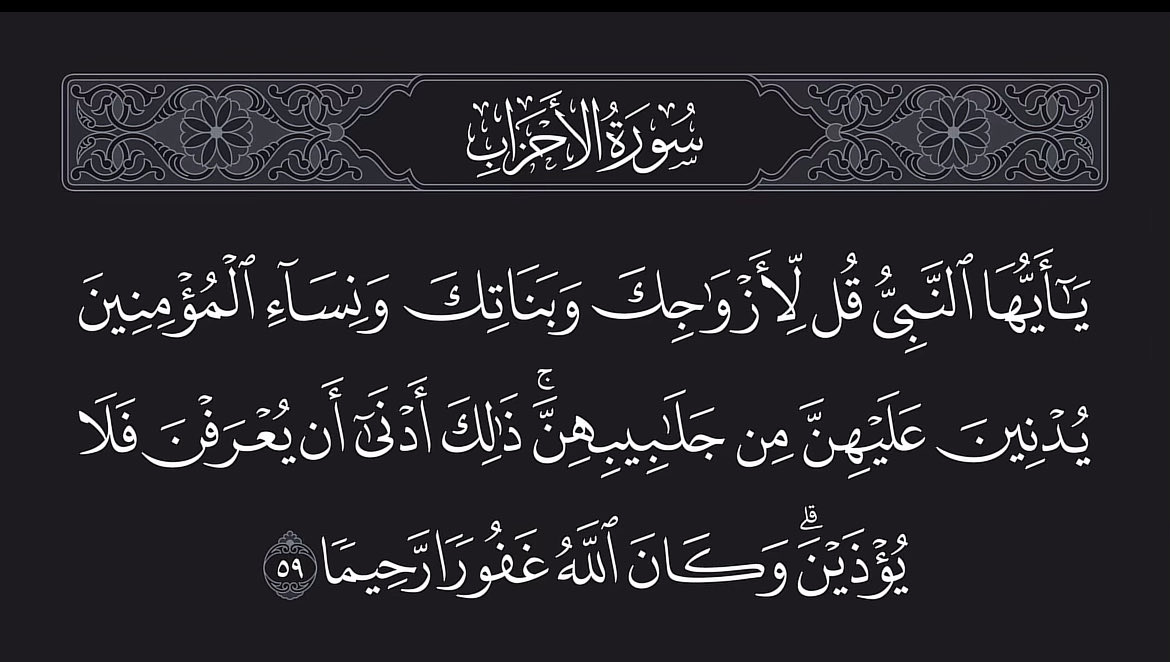 سُورَةُ الأَحْزَابِ
يَـٰٓأَيُّهَا ٱلنَّبِىُّ قُل لِّأَزْوَٰجِكَ وَبَنَاتِكَ وَنِسَآءِ ٱلْمُؤْمِنِينَ
يُدْنِينَ عَلَيْهِنَّ مِن جَلَـٰبِيبِهِنَّ ۚ ذَٰلِكَ أَدْنَىٰٓ أَن يُعْرَفْنَ فَلَا
يُؤْذَيْنَ ۗ وَكَانَ ٱللَّهُ غَفُورًا رَّحِيمًا ٥٩